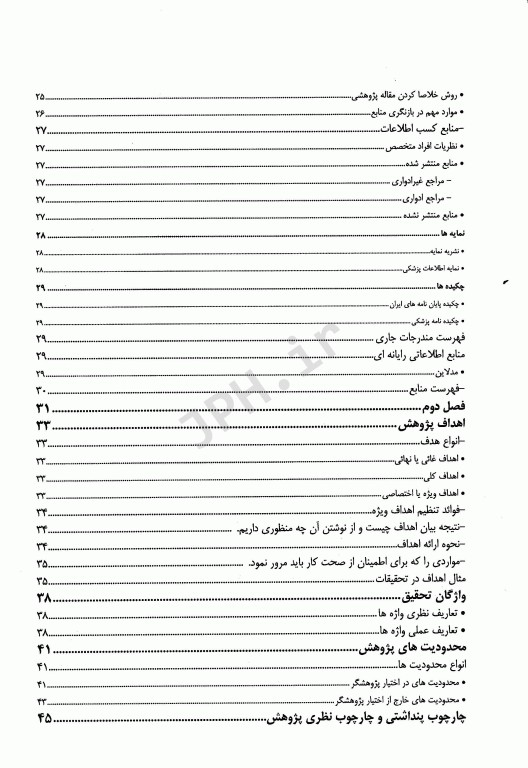 • روش خلاصا کردن مقاله پژوهشی ........ ۲۵
• موارد مهم در بازنگری منابع ........ ۲۶
–منابع کسب اطلاعات ........ ۲۷
• نظریات افراد متخصص ........ ۲۷
• منابع منتشر شده ........ ۲۷
– مراجع غیرادواری ........ ۲۷
– مراجع ادواری ........ ۲۷
• منابع منتشر نشده ........ ۲۷
نمایه ها ........ ۲۸
• نشریه نمایه ........ ۲۸
• نمایه اطلاعات پزشکی ........ ۲۸
چکیده ها ........ ۲۹
• چکیده پایان نامه های ایران ........ ۲۹
• چکیده نامه پزشکی ........ ۲۹
فهرست مندرجات جاری ........ ۲۹
منابع اطلاعاتی رایانه ای ........ ۲۹
• مدلاین ........ ۲۹
–فهرست منابع ........ ۳۰
فصل دوم ........ ۳۱
اهداف پژوهش ........ ۳۳
–انواع هدف ........ ۳۳
• اهداف غائی یا نهائی ........ ۳۳
• اهداف کلی ........ ۳۳
• اهداف ویژه یا اختصاصی ........ ۳۳
–فوائد تنظیم اهداف ویژه ........ ۳۴
–نتیجه بیان اهداف چیست و از نوشتن آن چه منظوری داریم. ........ ۳۴
–نحوه ارائه اهداف ........ ۳۴
–مواردی را که برای اطمینان از صحت کار باید مرور نمود. ........ ۳۵
مثال اهداف در تحقیقات ........ ۳۵
واژگان تحقیق ........ ۳۸
• تعاریف نظری واژه ها ........ ۳۸
• تعاریف عملی واژه ها ........ ۳۸
محدودیت های پژوهش ........ ۴۱
انواع محدودیت ها ........ ۴۱
• محدودیت های در اختیار پژوهشگر ........ ۴۱
• محدودیت های خارج از اختیار پژوهشگر ........ ۴۳
چارچوب پنداشتی و چارچوب نظری پژوهش ........ ۴۵
JPH.ir